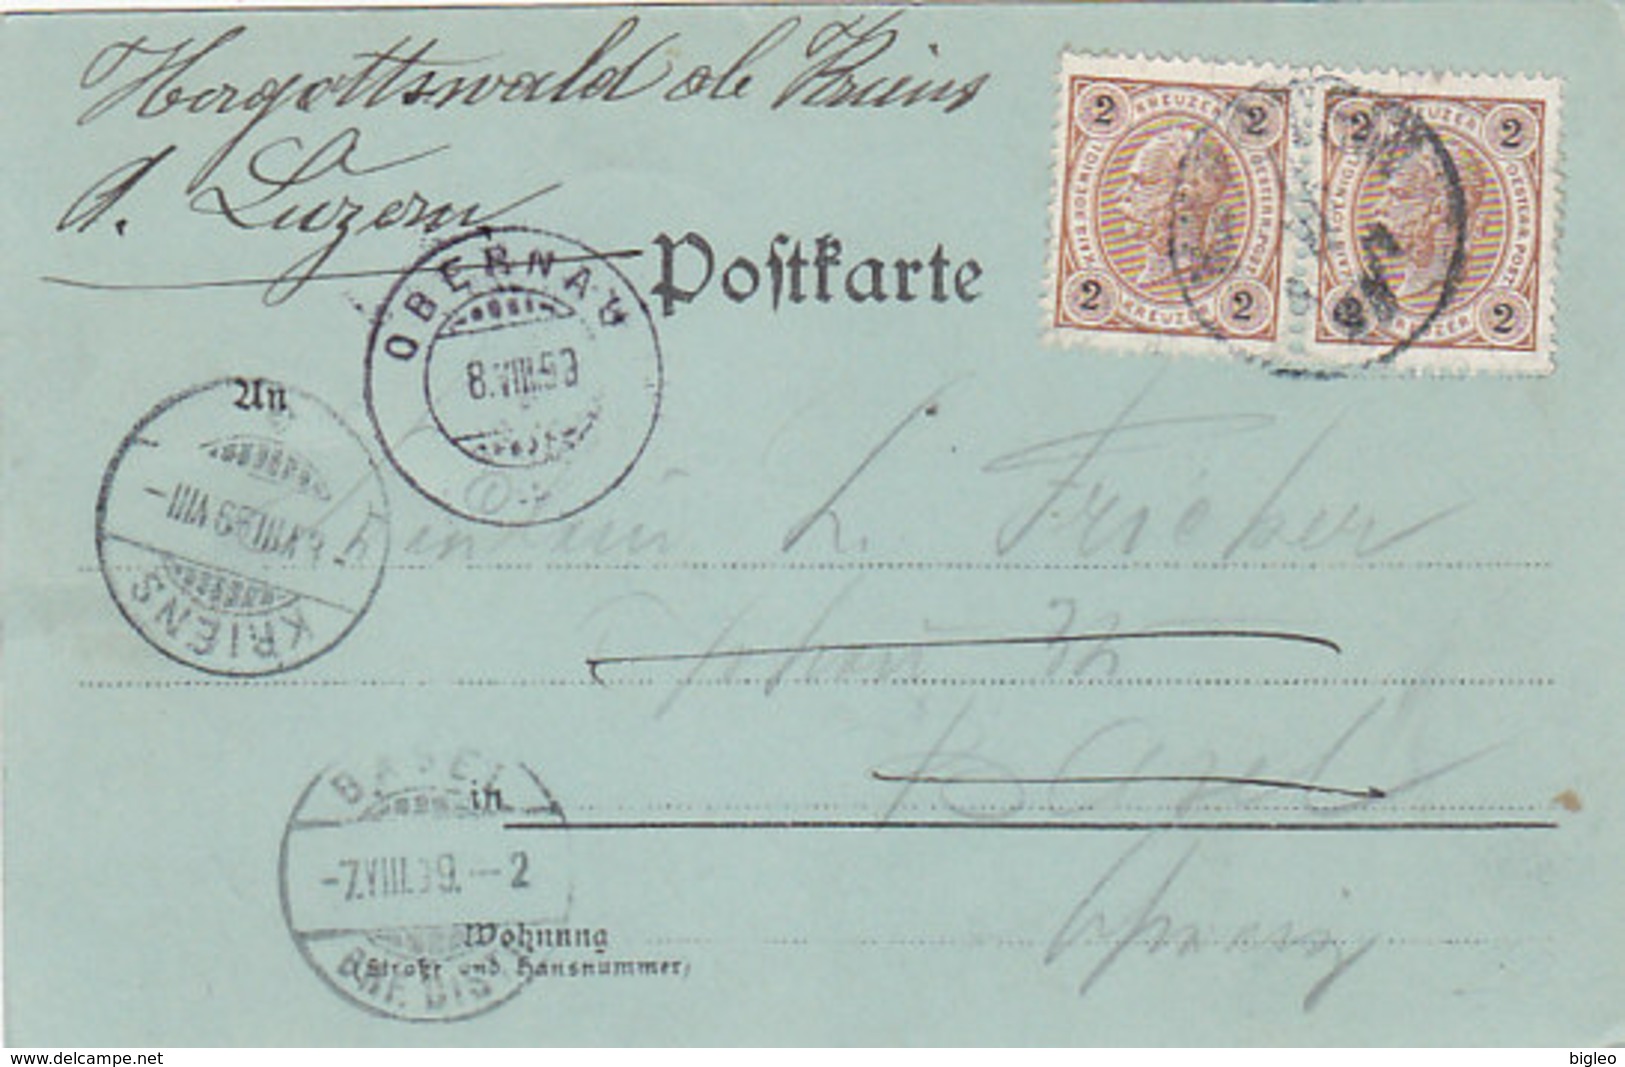 Hergottswald ob Kriens
b. Luzern
2 KREUZER 2
2 KREUZER 2
OESTERR. POST
2 KREUZER 2
2 KREUZER 2
OESTERR. POST
Postkarte
OBERNAU
8.VIII.99
An
KRIENS
VIII
L. Fricker
Basel
BASEL
-7.VIII.99.--2
in
Schweiz
Wohnung
(Straße und Hausnummer)
www.delcampe.net
bigleo